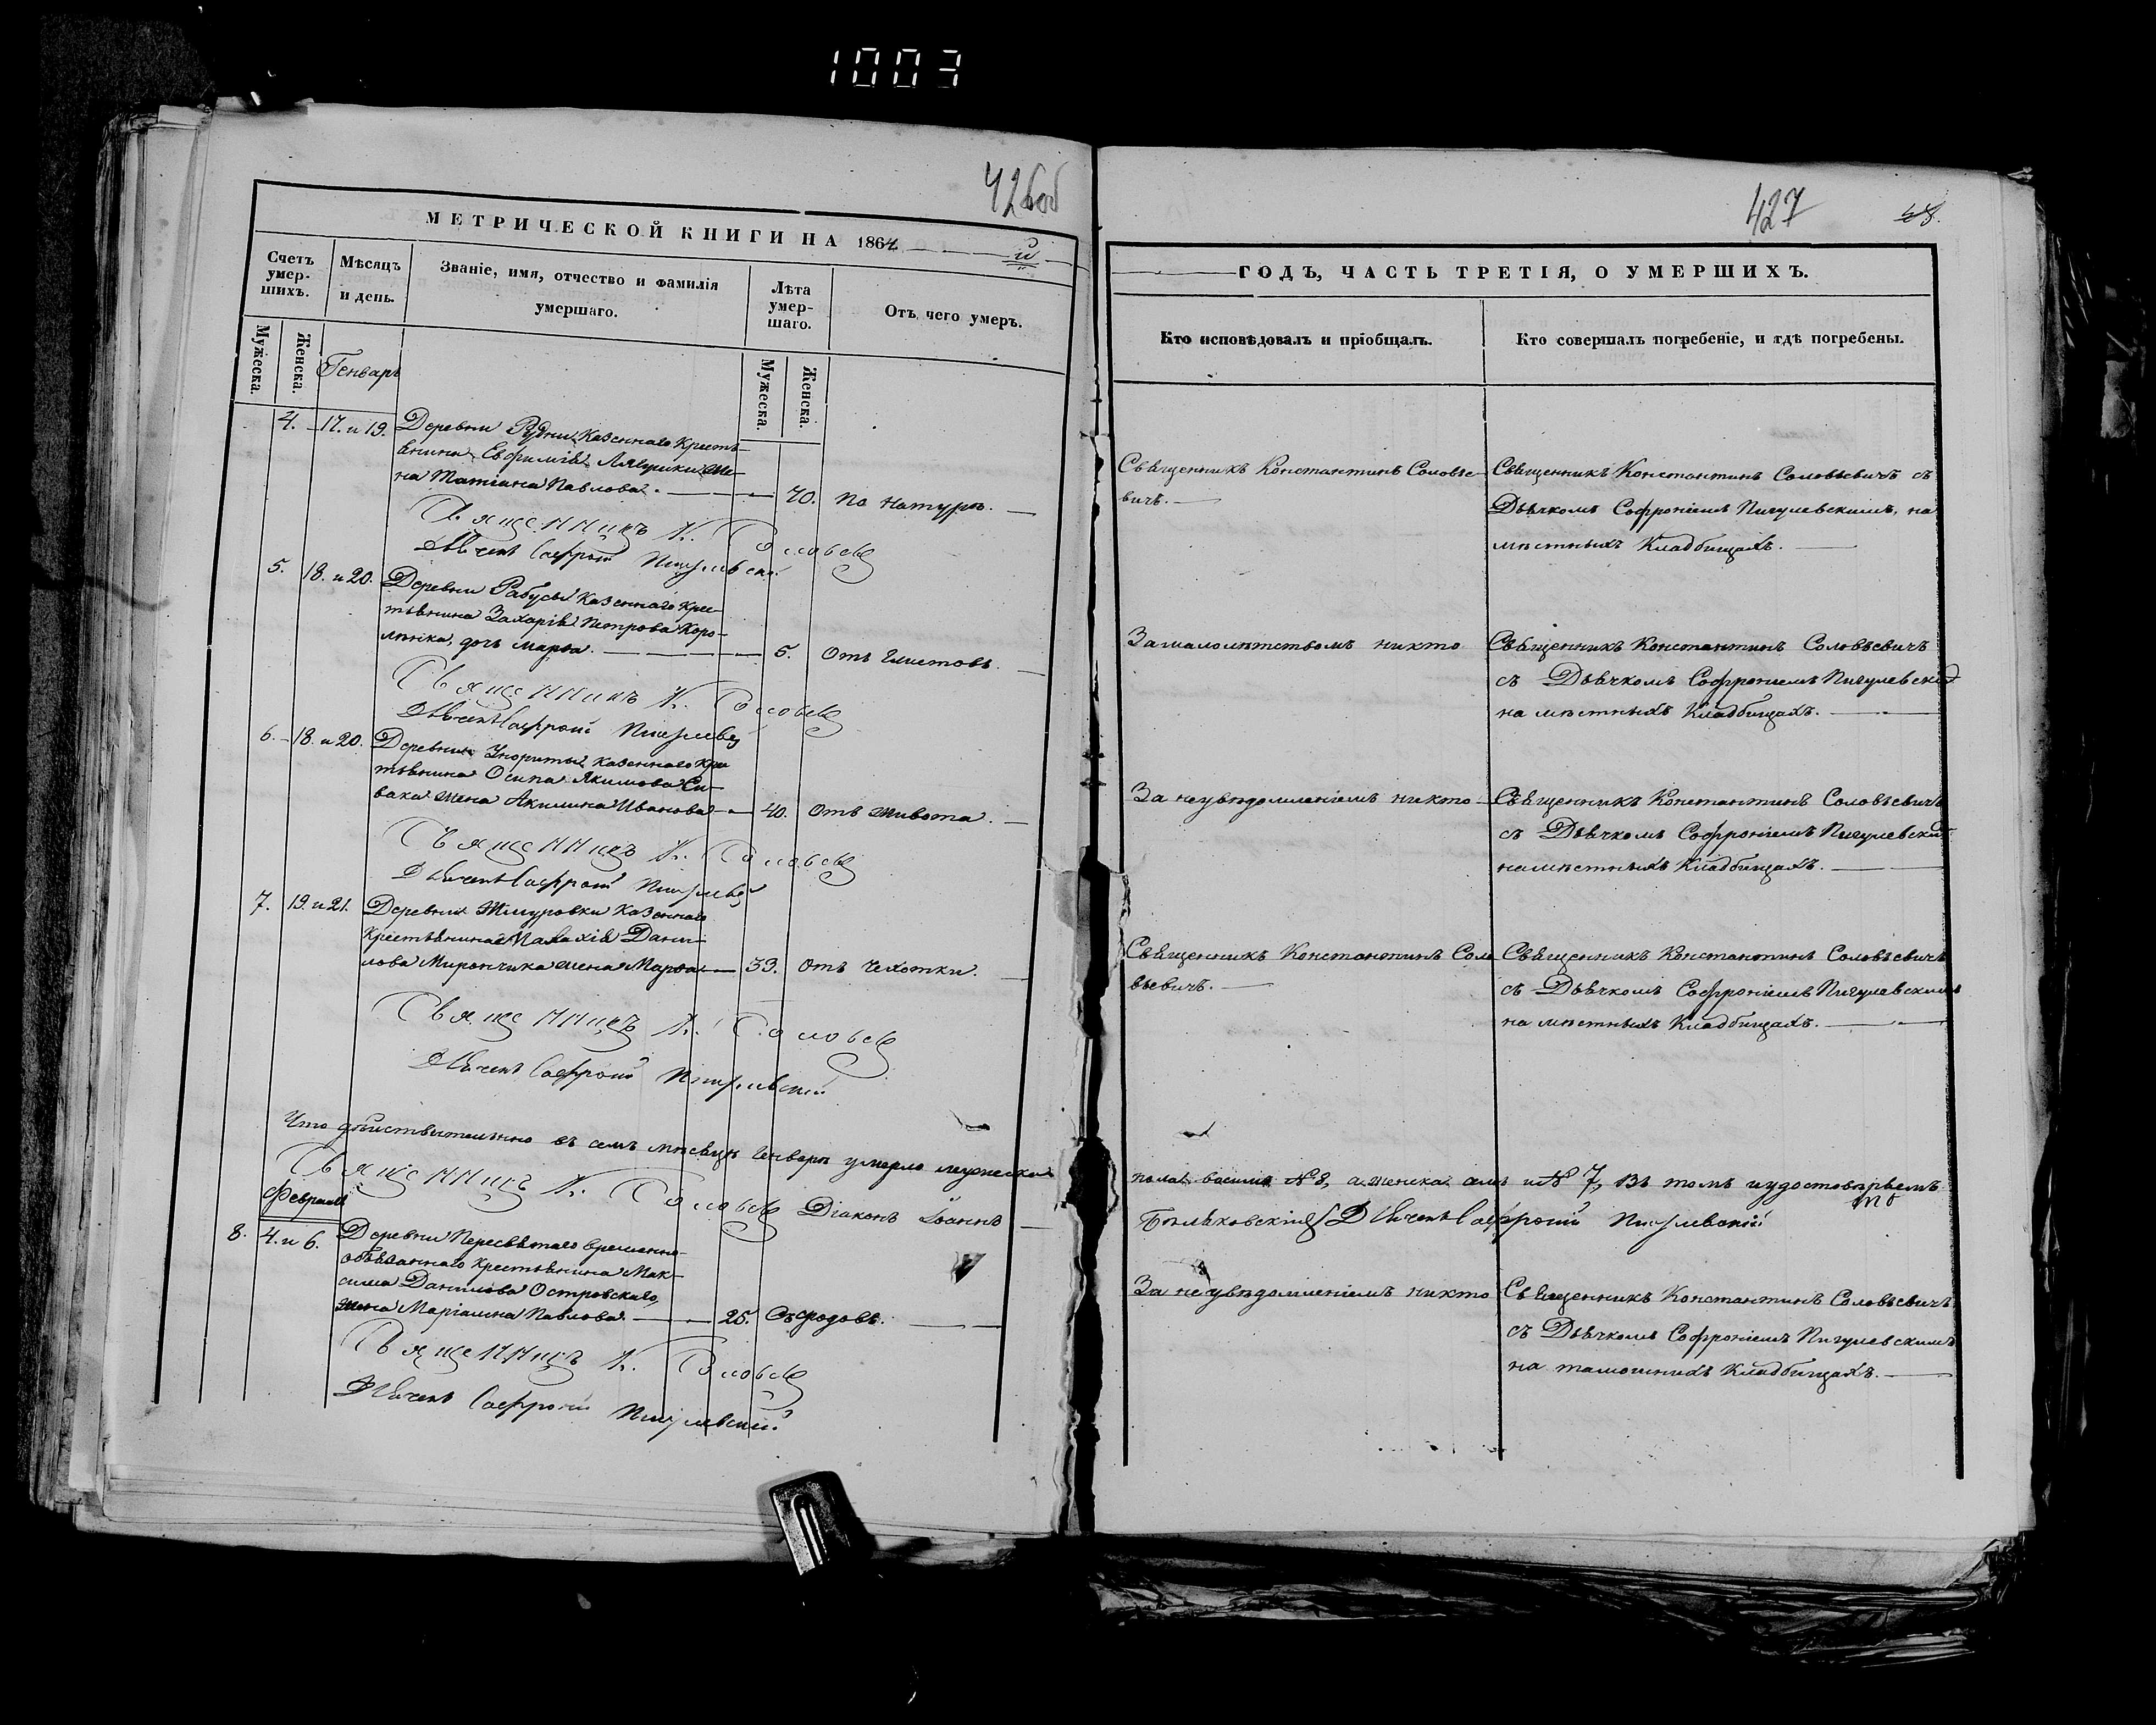 1003
426об
МЕТРИЧЕСКОЙ КНИГИ НА 1864
Счетъ умер-шихъ.
Мѣсяцъ и день.
Званіе, имя, отчество и фамилія умершаго.
Лѣта умер-шаго.
Отъ чего умеръ.
Мужеска.
Женска.
Генварь
Мужеска.
Женска.
4. 17. и 19. Деревни Рудни Казеннаго Кресть-
янина Евфимія Лягушки же-
на Татіана Павлова. 70. По натурѣ.
Священникъ К. Соловье
Дьячекъ Софроній Пигулевскій
5. 18. и 20. Деревни Рабусы Казеннаго Крес-
тьянина Захарія Петрова Коро-
лянка, дочь Марѳа. 5. Отъ Глистовъ.
Священникъ К. Соловье
Дьячекъ Софроній Пигулев
6. 18. и 20. Деревни Казеннаго Крес
тьянина Осипа Якимова Си-
вака жена Акилина Иванова 40. Отъ живота.
Священникъ К. Соловье
Дьячекъ Софроній Пигулев
7. 19. и 21. Деревни Жигуровки Казеннаго
Крестьянина Малахія Дани-
лова Мирончика жена Марѳа 33. Отъ Чехотки.
Священникъ К. Соловье
Дьячекъ Софроній Пигулевскій
Что дѣйствительно въ семъ мѣсяцѣ Генварѣ умерло мужеска
Священникъ К. Соловье Діаконъ Іоаннъ
Февраль
8. 4. и 6. Деревни Пересвѣтаго временно-
обязаннаго Крестьянина Мак-
сима Данилова Островскаго,
жена Маріамна Павлова. 25. Съ родовъ.
Священникъ К. Соловье
Дьячекъ Софроній Пигулевскій
427
ГОДЪ, ЧАСТЬ ТРЕТІЯ, О УМЕРШИХЪ.
Кто исповѣдовалъ и пріобщалъ.
Кто совершалъ погребеніе, и гдѣ погребены.
Священникъ Константинъ Соловье-
вичъ.
Священникъ Константинъ Соловьевичъ съ
Дьячкомъ Софроніемъ Пигулевскимъ, на
мѣстныхъ Кладбищахъ.
За малолѣтствомъ никто
Священникъ Константинъ Соловьевичъ
съ Дьячкомъ Софроніемъ Пигулевским
на мѣстныхъ Кладбищахъ.
За неувѣдомленіемъ никто
Священникъ Константинъ Соловьевичъ
съ Дьячкомъ Софроніемъ Пигулевским
на мѣстныхъ Кладбищахъ.
Священникъ Константинъ Соло
вьевичъ.
Священникъ Константинъ Соловьевичъ
съ Дьячкомъ Софроніемъ Пигулевскимъ
на мѣстныхъ Кладбищахъ.
пола восимь № 8, а женска семь № 7, въ томъ и удостовѣряемъ
Дьячекъ Софроній Пигулевскій
За неувѣдомленіемъ никто
Священникъ Константинъ Соловьевичъ
съ Дьячкомъ Софроніемъ Пигулевскимъ
на тамошнихъ Кладбищахъ.